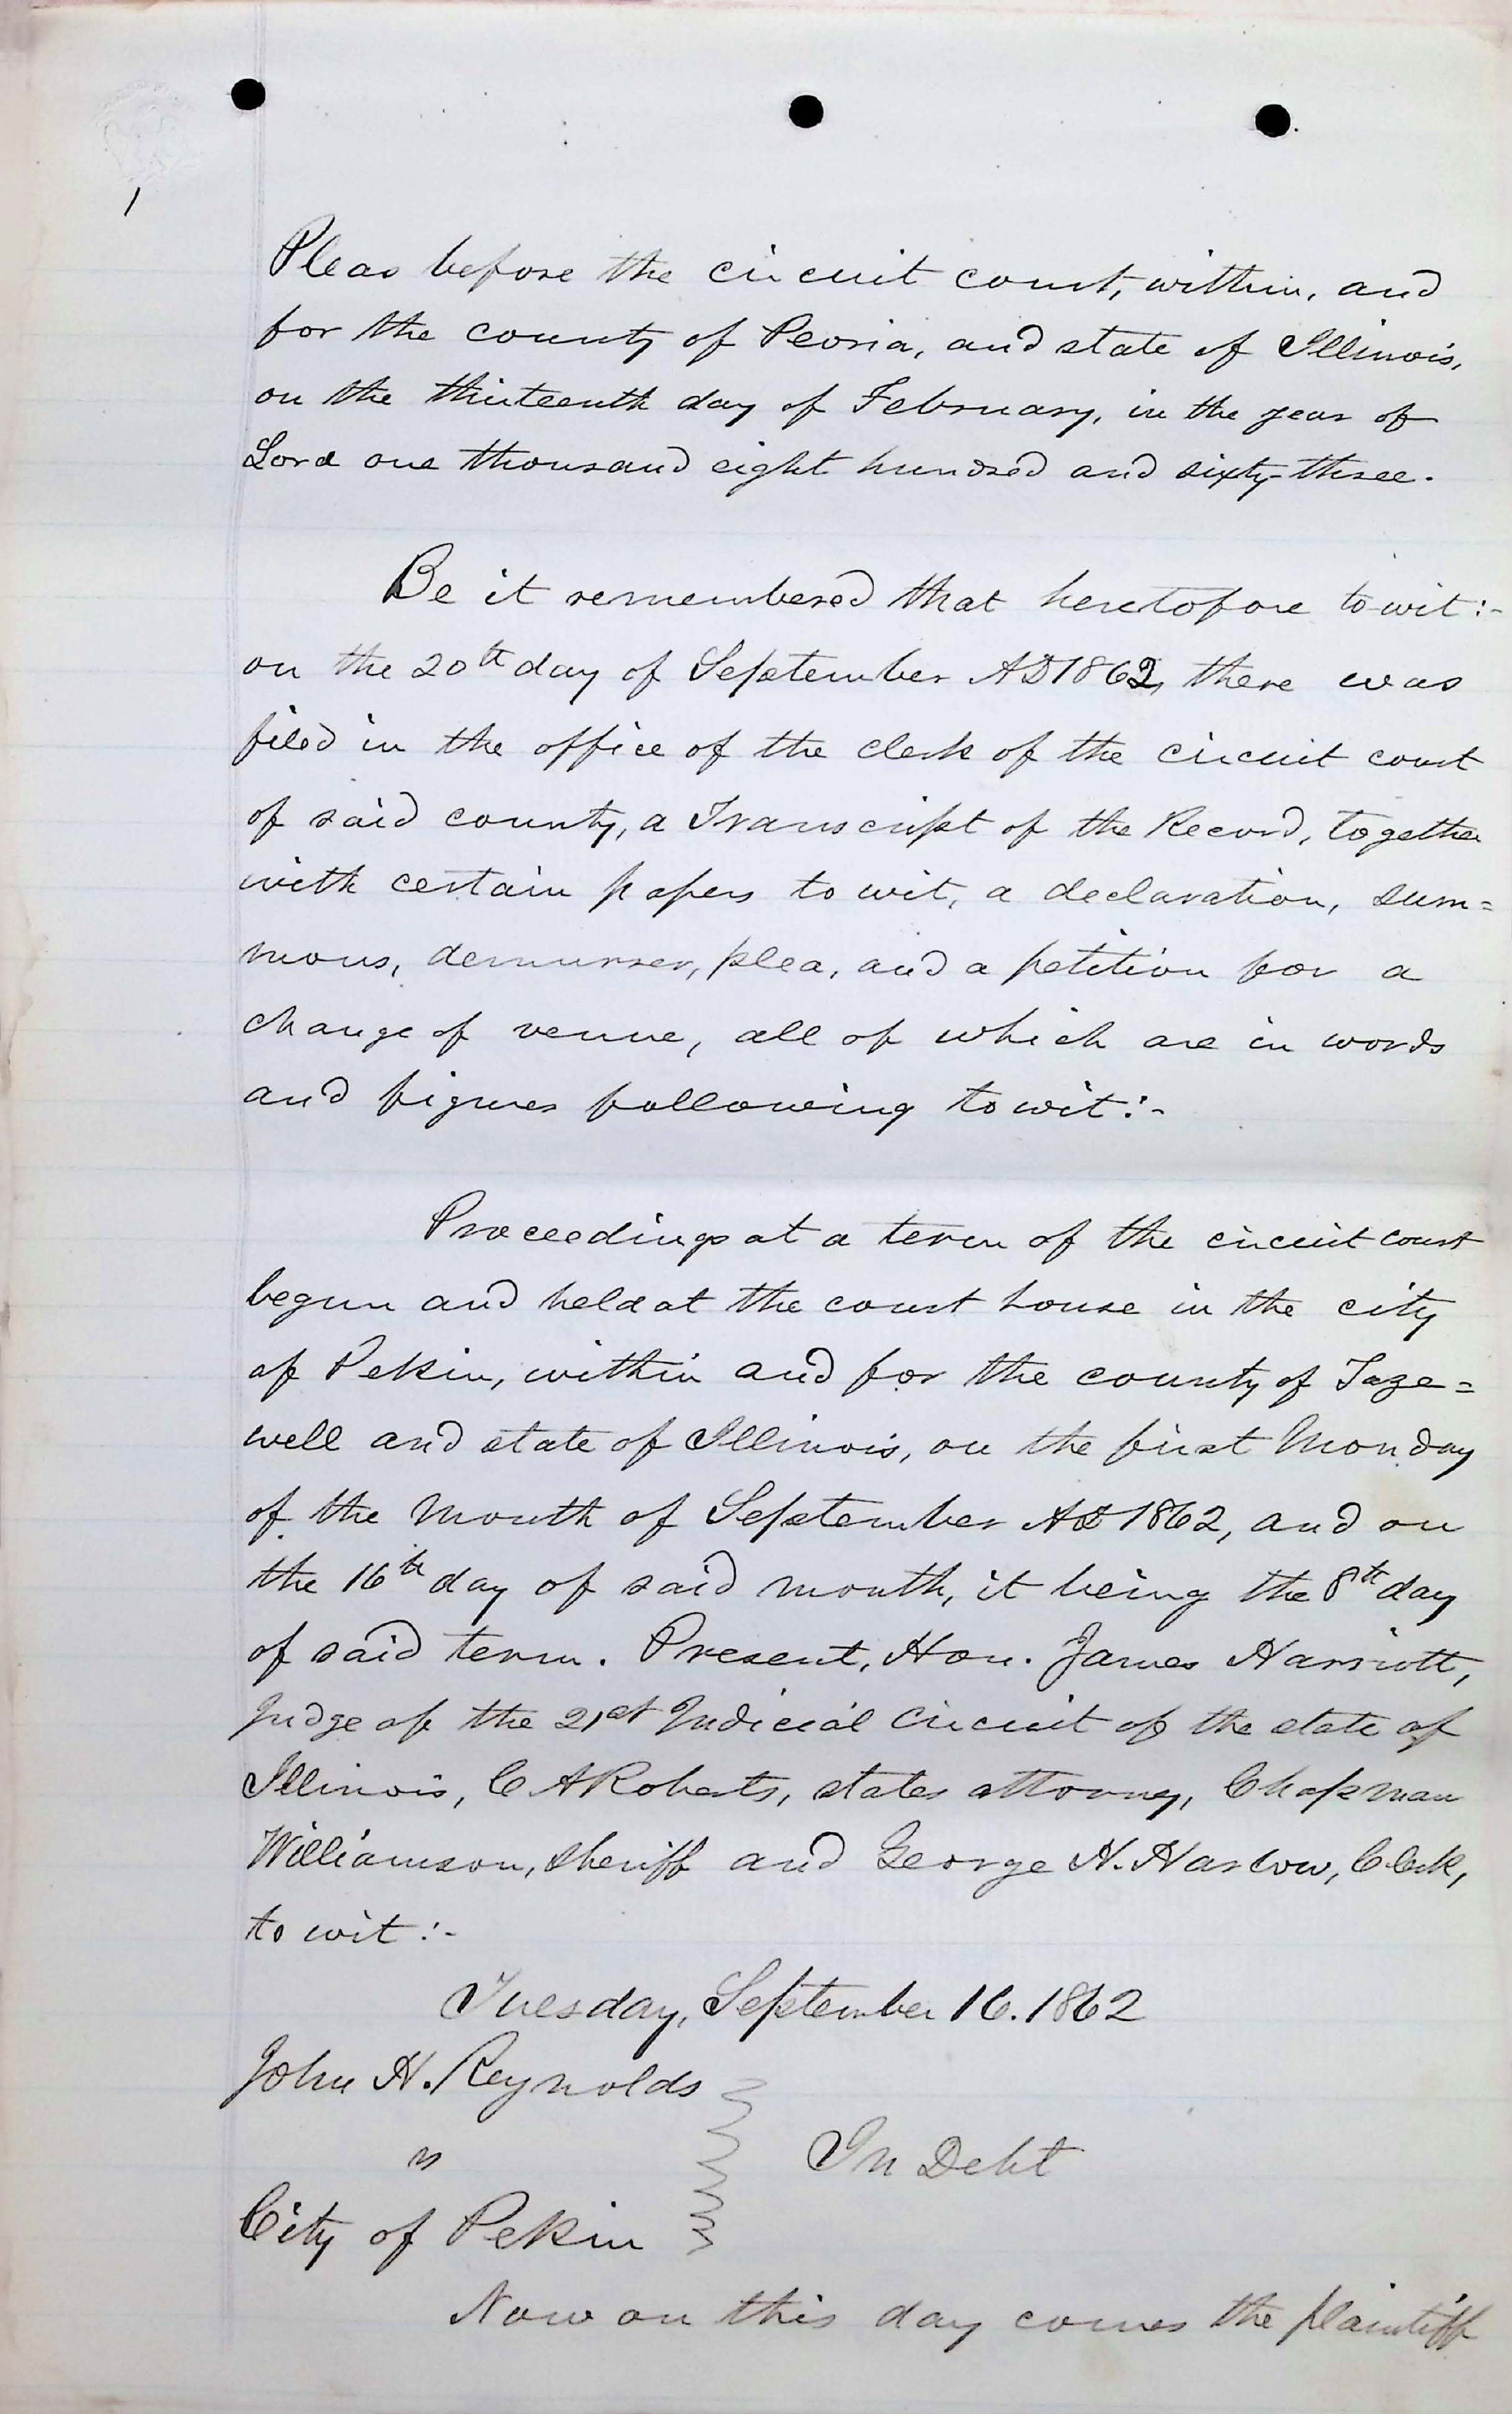 1
Pleas before the circuit court, within, and
for the county of Peoria, and state of Illinois,
on the thirteenth day of February, in the year of
Lord one thousand eight hundred and sixty-three.
Be it remembered that heretofore to-wit:-
on the 20th day of September AD 1862, there was
filed in the office of the clerk of the circuit court
of said county, a Transcript of the Record, together
with certain papers to wit, a declaration, sum=
mons, demurrer, plea, and a petition for a
change of venue, all of which are in words
and figures following to wit:-
Proceedings at a term of the circuit court
begun and held at the court house in the city
of Pekin, within and for the county of Taze=
well and state of Illinois, on the first Monday
of the month of September AD 1862, and on
the 16th day of said month, it being the 8th day
of said term. Present, Hon. James Harriott,
Judge of the 21st Judicial Circuit of the state of
Illinois, C A Roberts, states attorny, Chapman
Williamson, sheriff and George H. Harlow, Clerk,
to wit:-
Tuesday, September 16. 1862
John H. Reynolds
vs
In Debt
City of Pekin
Now on this day comes the plaintiff